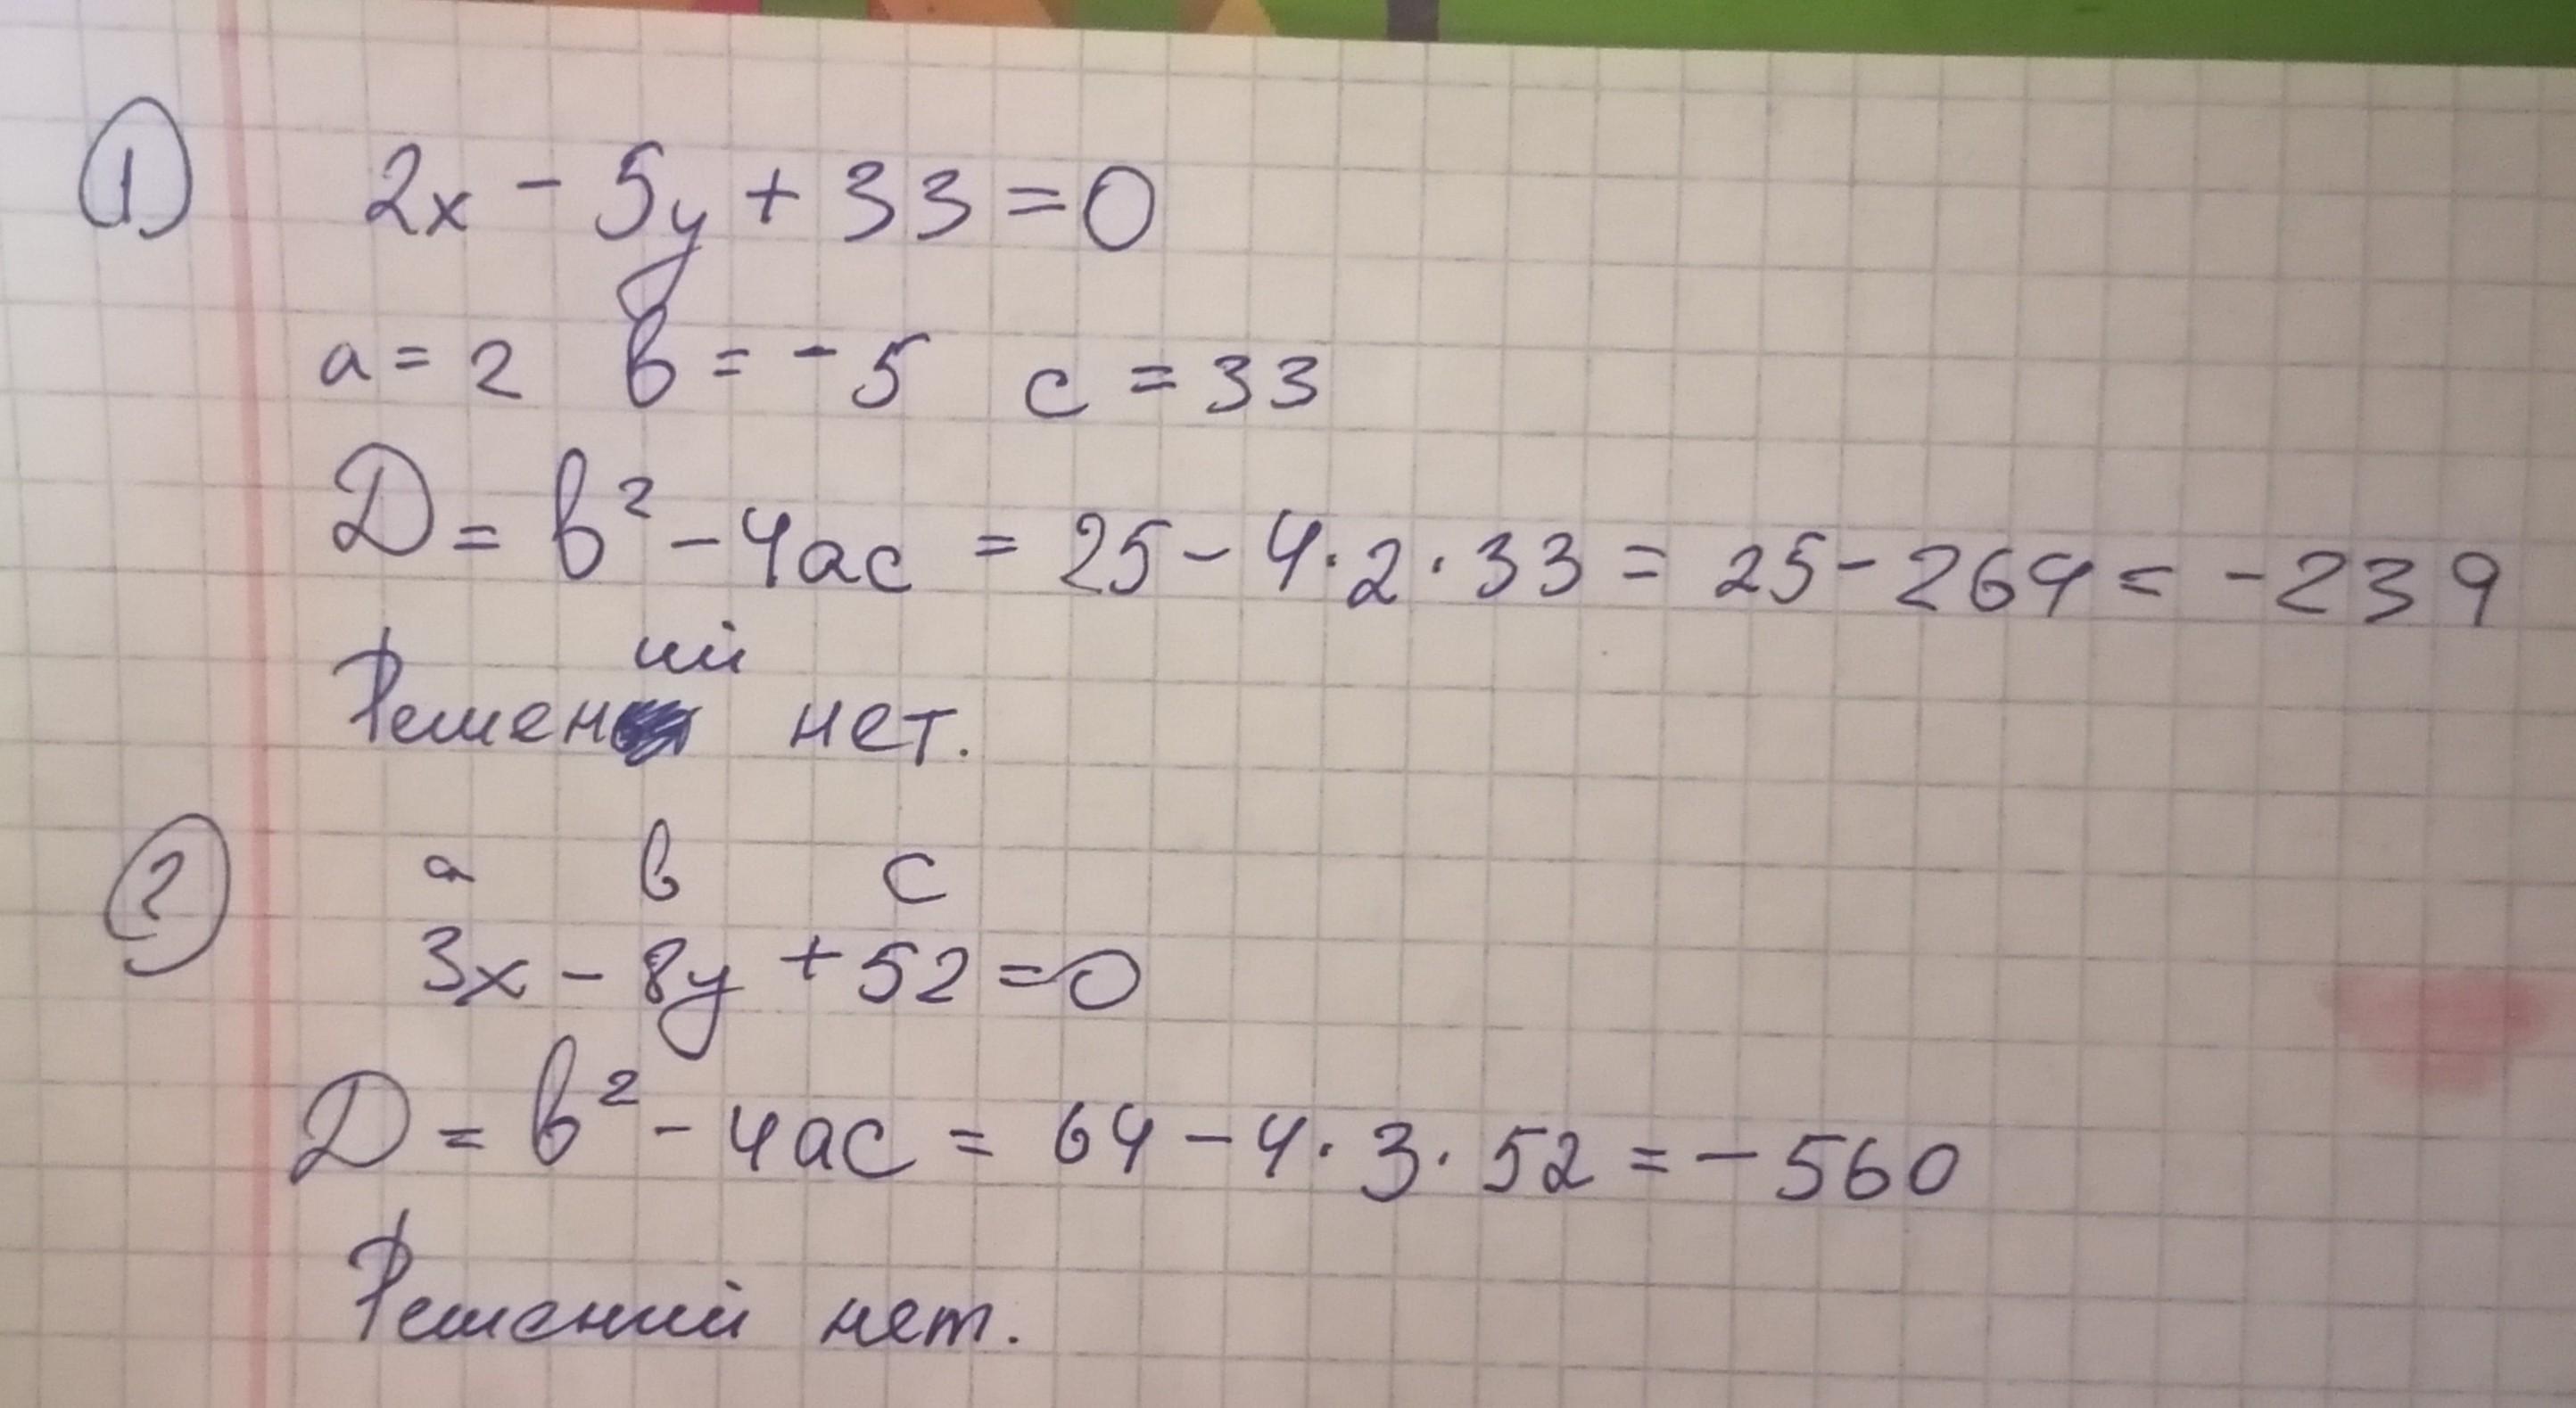 1
2x - 5y + 33 = 0
a = 2 в = - 5 c = 33
D = в² - 4ac = 25 - 4 · 2 · 33 = 25 - 264 = - 239
Решений нет.
2
a в c
3x - 8y + 52 = 0
D = в² - 4ac = 64 - 4 · 3 · 52 = - 560
Решений нет.